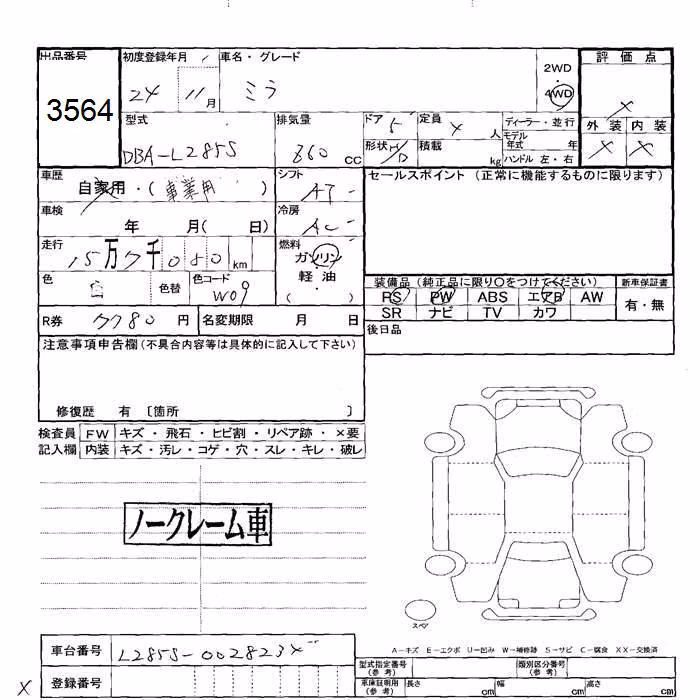 出品番号 初度登録年月 車名・グレード 評価点
3564 24 11月 ミラ 2WD ・ 4WD ×
型式 排気量 ドア 5 定員 4人 ディーラー・並行 外装 内装
DBA-L285S 660 cc 形状 積載 kg モデル年式 年 ハンドル 左・右 × ×
車歴 自家用・(事業用) シフト AT セールスポイント(正常に機能するものに限ります)
車検 年 月( 日) 冷房 AC
走行 15万7千080km 燃料 ガソリン・軽油 ( )
色 白 色替 色コード W09 装備品(純正品に限り○をつけてください) 新車保証書
PS PW ABS エアB AW 有・無
SR ナビ TV カワ
R券 7780円 名変期限 月 日 後日品
注意事項申告欄(不具合内容等は具体的に記入して下さい)
修復歴 有 〔箇所 〕
検査員 FW キズ・飛石・ヒビ割・リペア跡・×要
記入欄 内装 キズ・汚レ・コゲ・穴・スレ・キレ・破レ
ノークレーム車
スペア
A-キズ E-エクボ U-凹み W-補修跡 S-サビ C-腐食 XX-交換済
車台番号 L285S-0028234 型式指定番号(参考) 類別区分番号(参考)
× 登録番号 車庫証明用(参考) 長さ cm 幅 cm 高さ cm